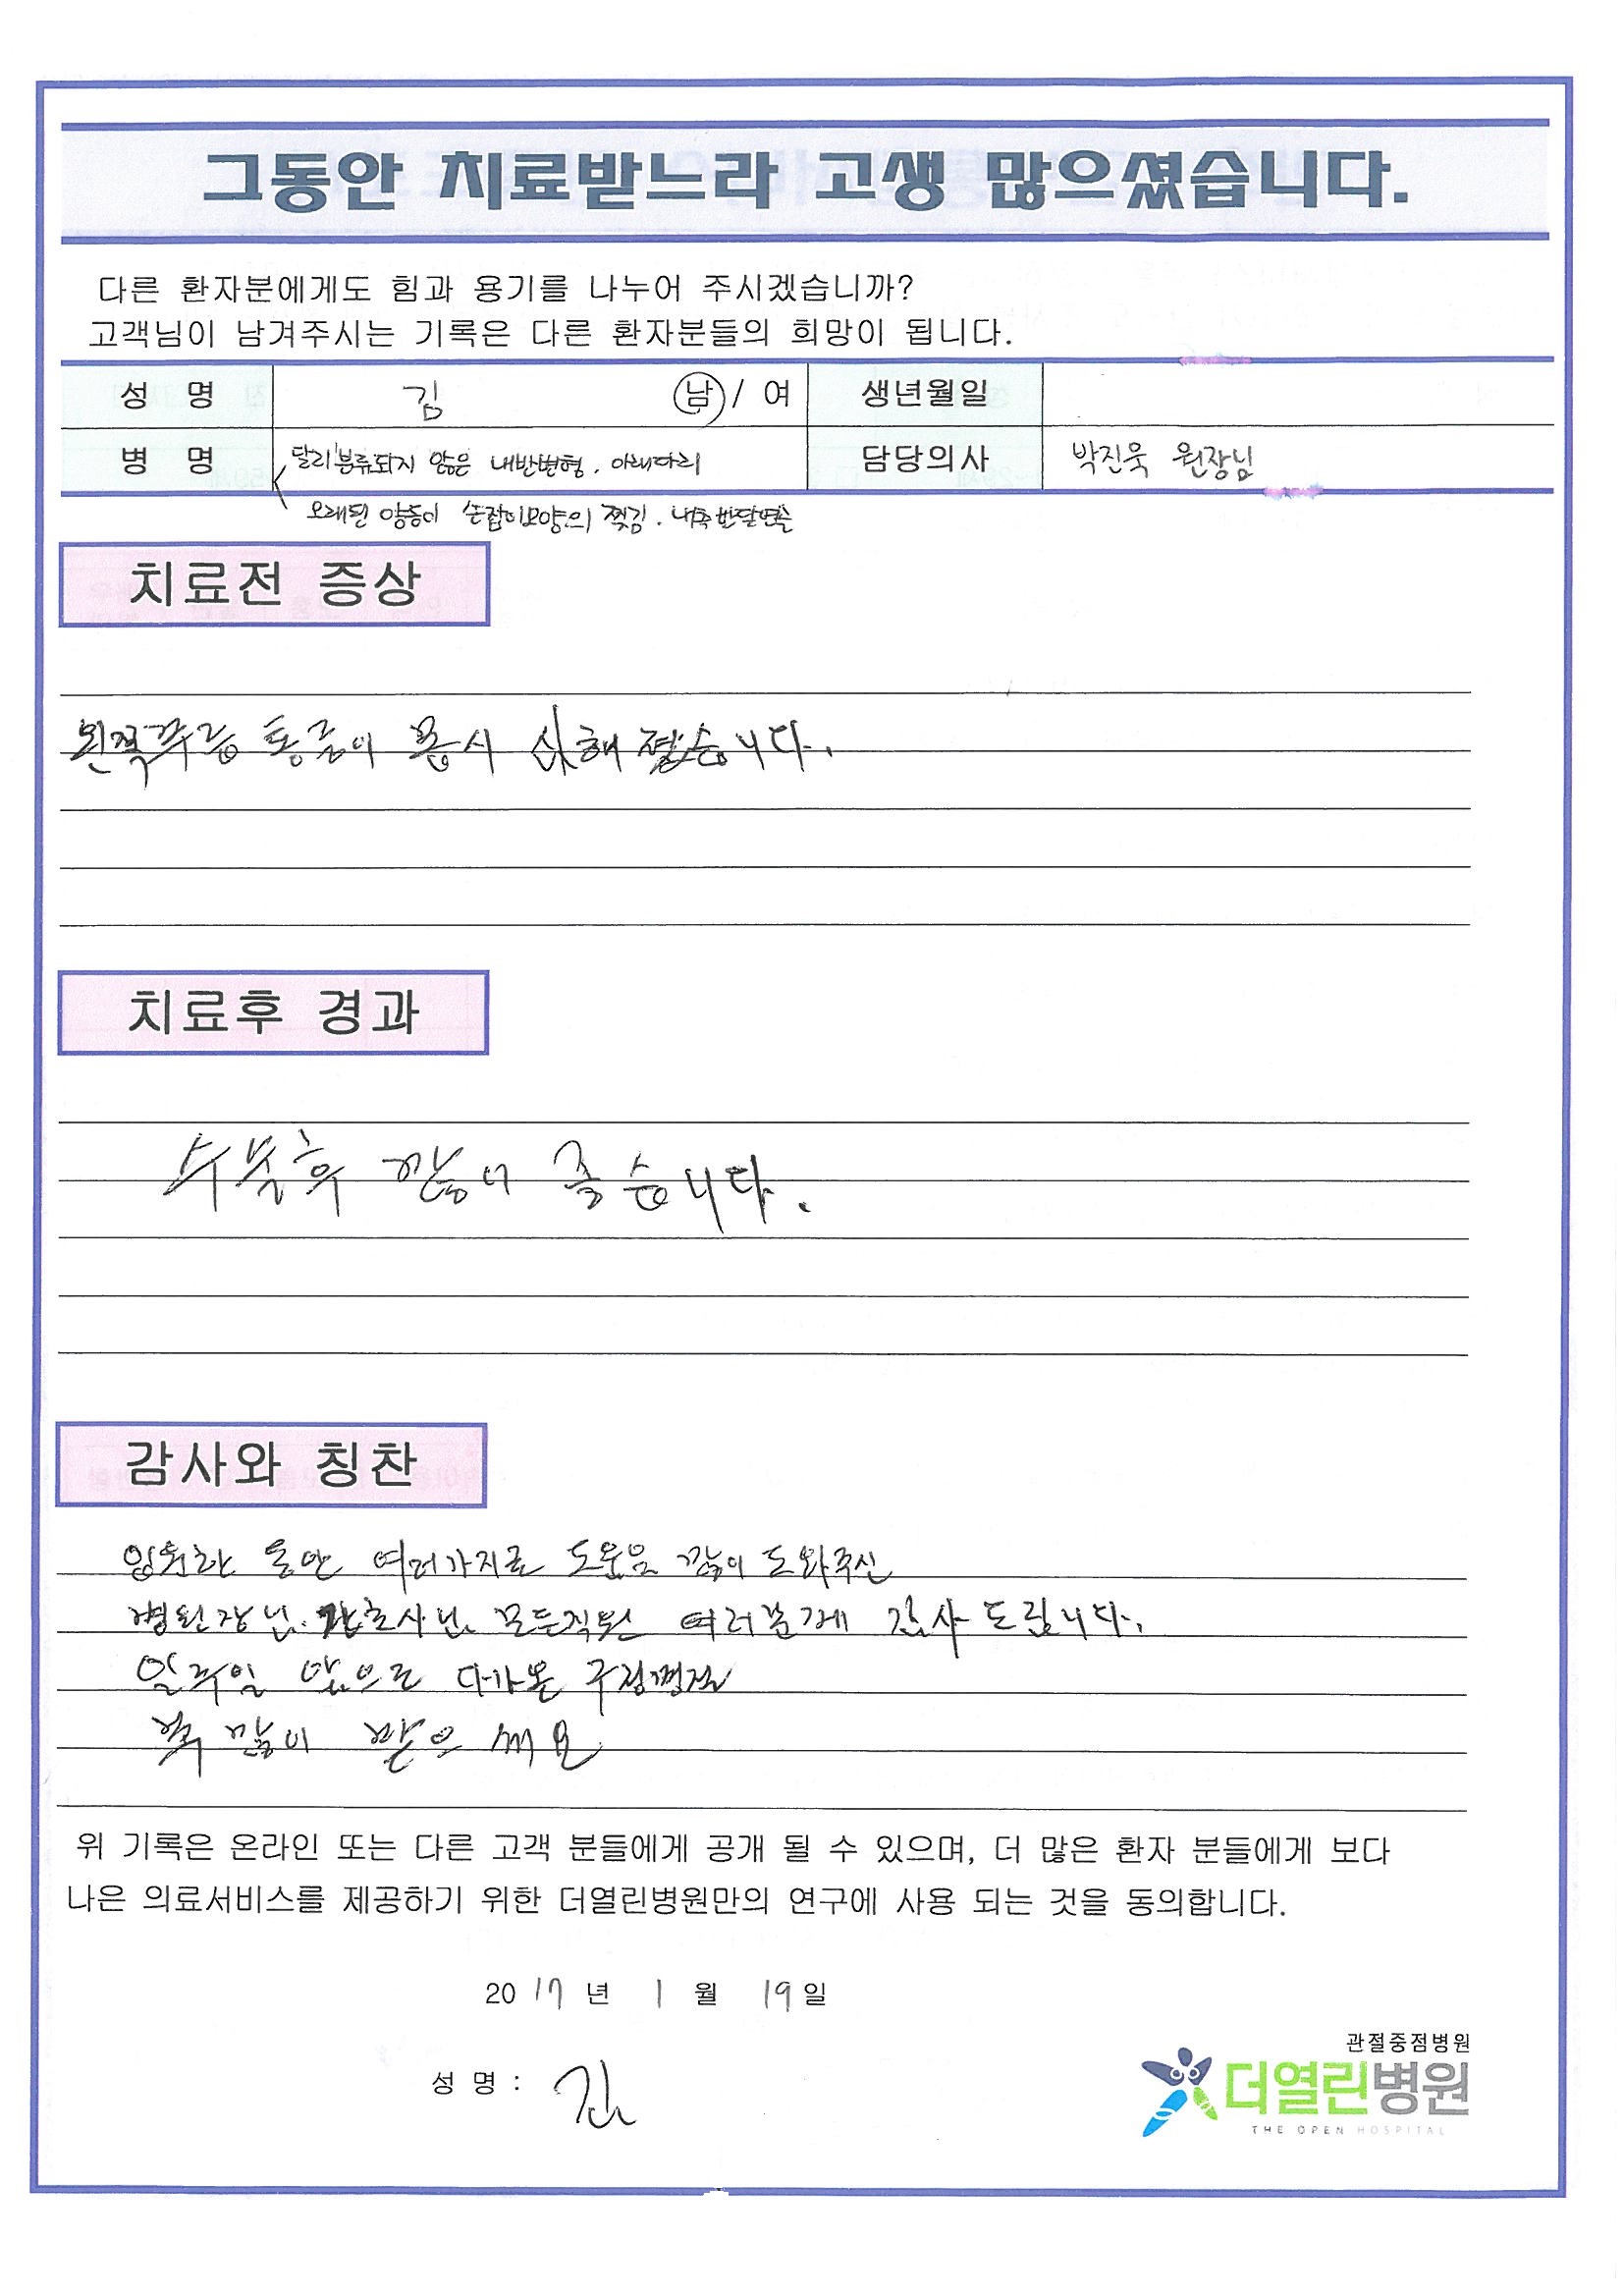 그동안 치료받느라 고생 많으셨습니다.
다른 환자분에게도 힘과 용기를 나누어 주시겠습니까?
고객님이 남겨주시는 기록은 다른 환자분들의 희망이 됩니다.
성 명 김 남 / 여 생년월일
병 명 달리 분류되지 않은 내반변형. 아래다리 담당의사 박진욱 원장님
오래된 양동이 손잡이모양의 찢김. 내측 반달연골
치료전 증상
왼쪽무릎 통증이 몹시 심해 졌습니다.
치료후 경과
수술후 많이 좋습니다.
감사와 칭찬
입원한 동안 여러가지로 도움을 많이 도와주신
병원장님. 간호사님. 모든직원 여러분께 감사 드립니다.
일주일 앞으로 다가온 구정명절
복 많이 받으세요
위 기록은 온라인 또는 다른 고객 분들에게 공개 될 수 있으며, 더 많은 환자 분들에게 보다
나은 의료서비스를 제공하기 위한 더열린병원만의 연구에 사용 되는 것을 동의합니다.
2017년 1월 19일
성 명 : 김
관절중점병원
더열린병원
THE OPEN HOSPITAL